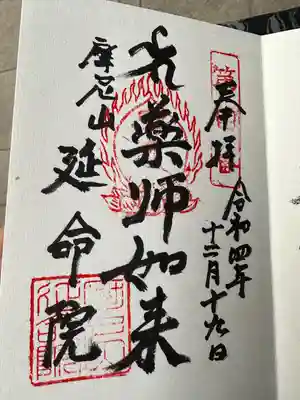 奉拝
令和四年
十二月十九日
藥师如来
摩尼山
延命院